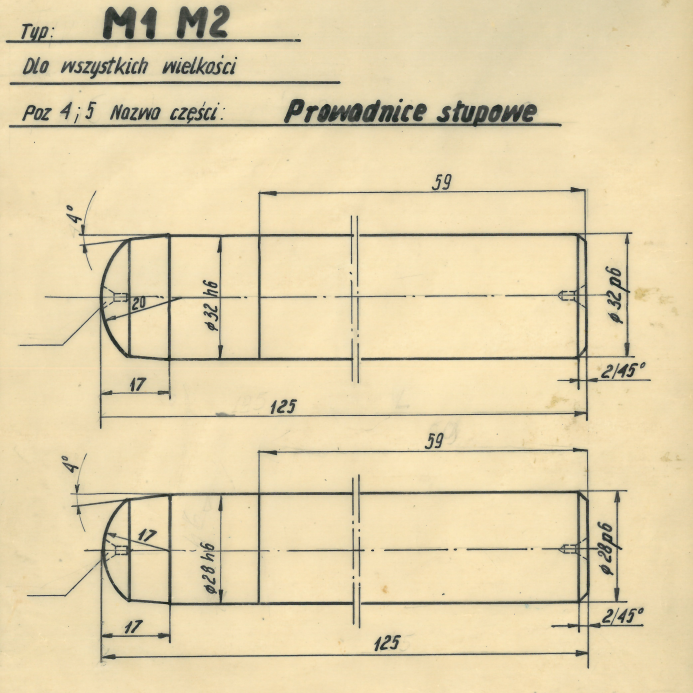 Typ: M1 M2
Dla wszystkich wielkości
Poz 4; 5 Nazwa części: Prowadnice słupowe
59
4°
20
φ32 h6
φ32 p6
17
2/45°
125
59
4°
17
φ28 h6
φ28 p6
17
2/45°
125